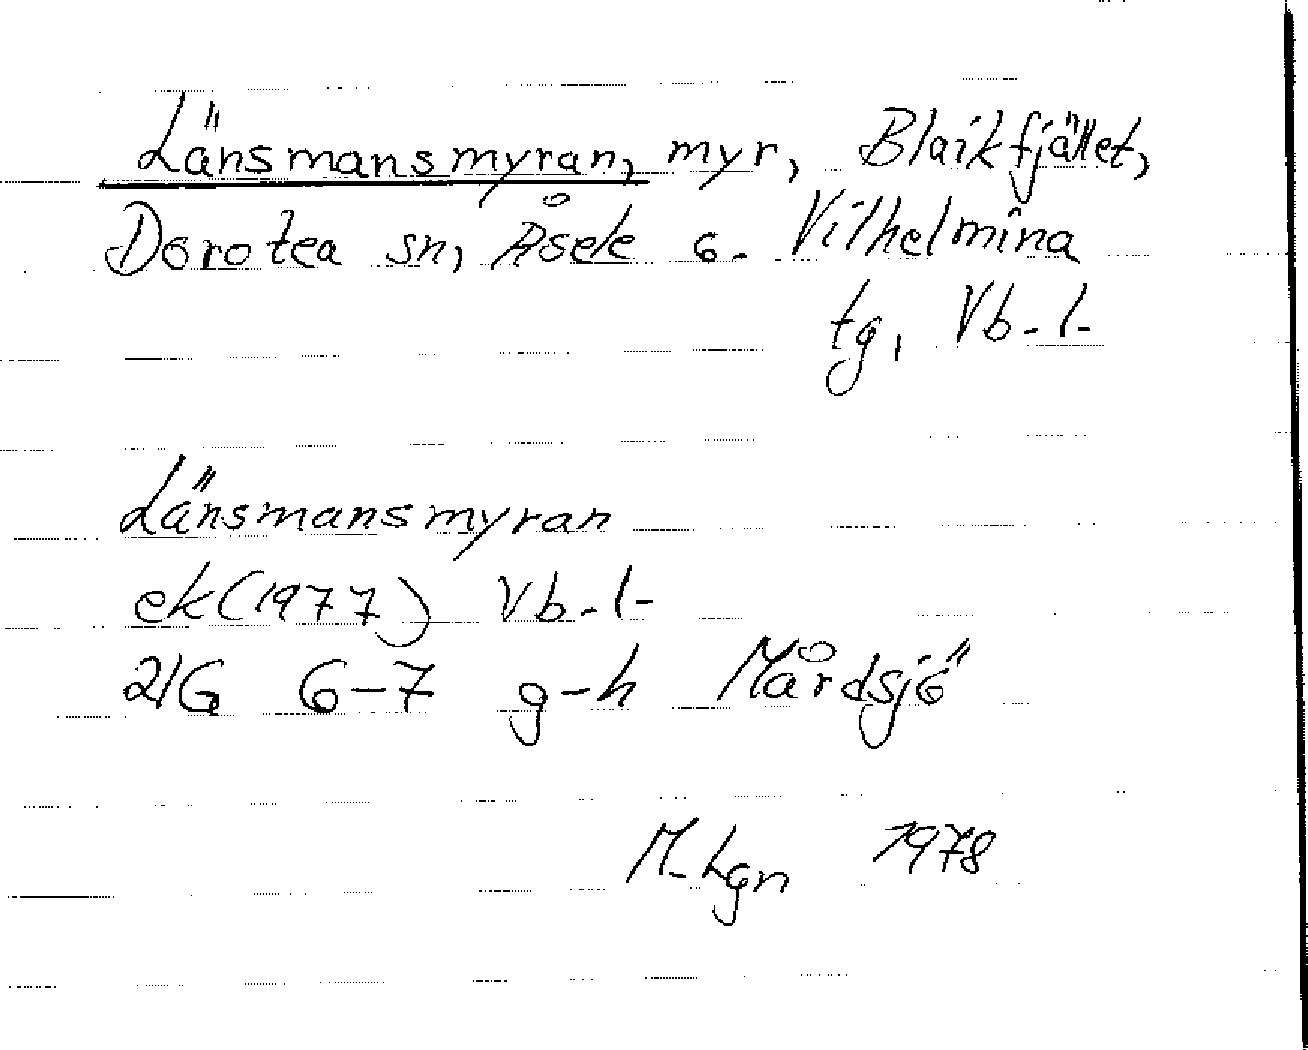 Länsmansmyran, myr, Blaikfjället,
Dorotea sn, Åsele o. Vilhelmina
tg, Vb-l-
Länsmansmyran
ek(1977) Vb-l-
21G 6-7 g-h Mårdsjö
M-Lgn 1978